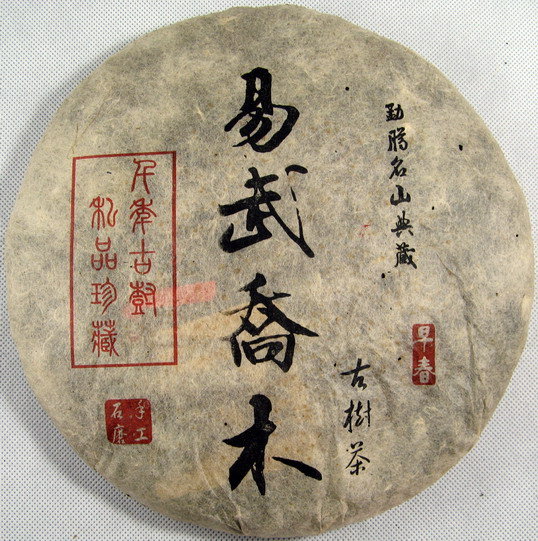 勐腾名山典藏
早春
易武喬木
古樹茶
千年古樹
私品珍藏
手工
石磨